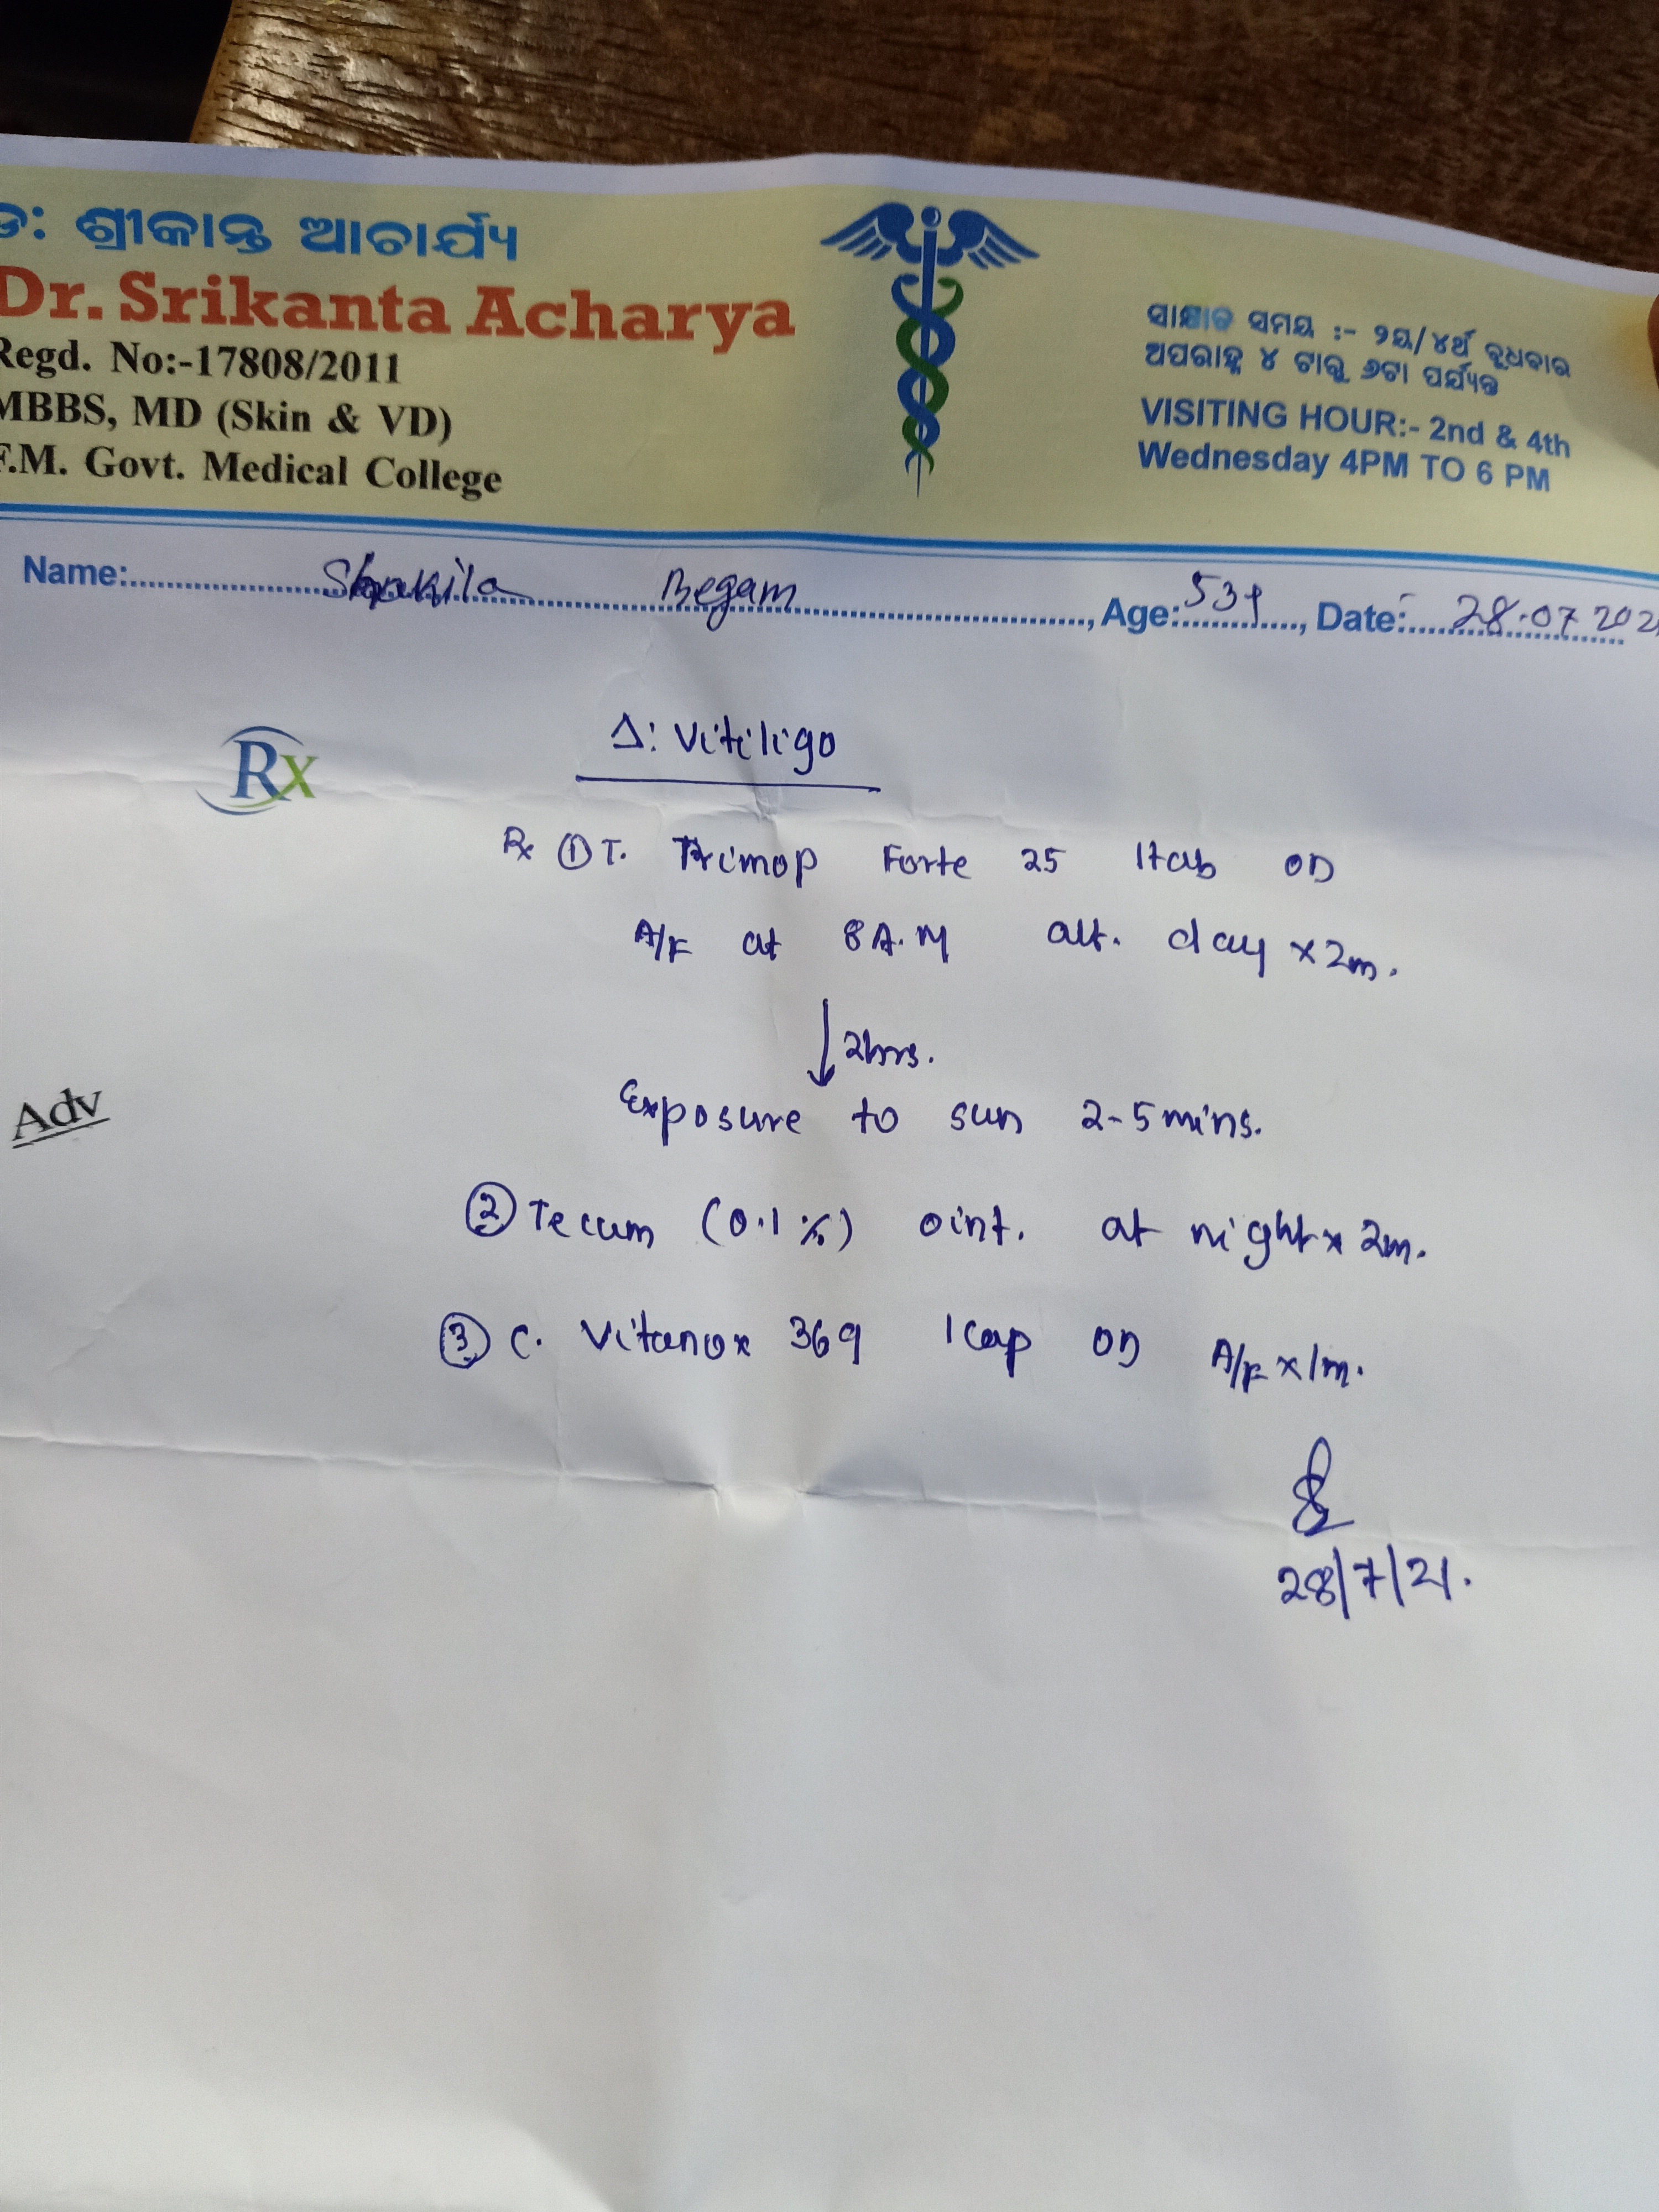 ଡ: ଶ୍ରୀକାନ୍ତ ଆଚାର୍ଯ୍ୟ
Dr. Srikanta Acharya
Regd. No:-17808/2011
MBBS, MD (Skin & VD)
F.M. Govt. Medical College
ସାକ୍ଷାତ ସମୟ :- ୨ୟ/୪ର୍ଥ ବୁଧବାର
ଅପରାହ୍ନ ୪ ଟାରୁ ୬ଟା ପର୍ଯ୍ୟନ୍ତ
VISITING HOUR:- 2nd & 4th
Wednesday 4PM TO 6 PM
Name: Shakila Begam, Age: 53y, Date: 28.07.202
Rx
Δ: Vitiligo
Rx ① T. Trimop Forte 25 1tab OD
A/F at 8 A.M alt. day x 2m.
↓ 2hrs.
Exposure to sun 2-5 mins.
Adv
② Tecum (0.1%) oint. at night x 2m.
③ C. Vitanox 369 1cap OD A/F x 1m.
28/7/21.